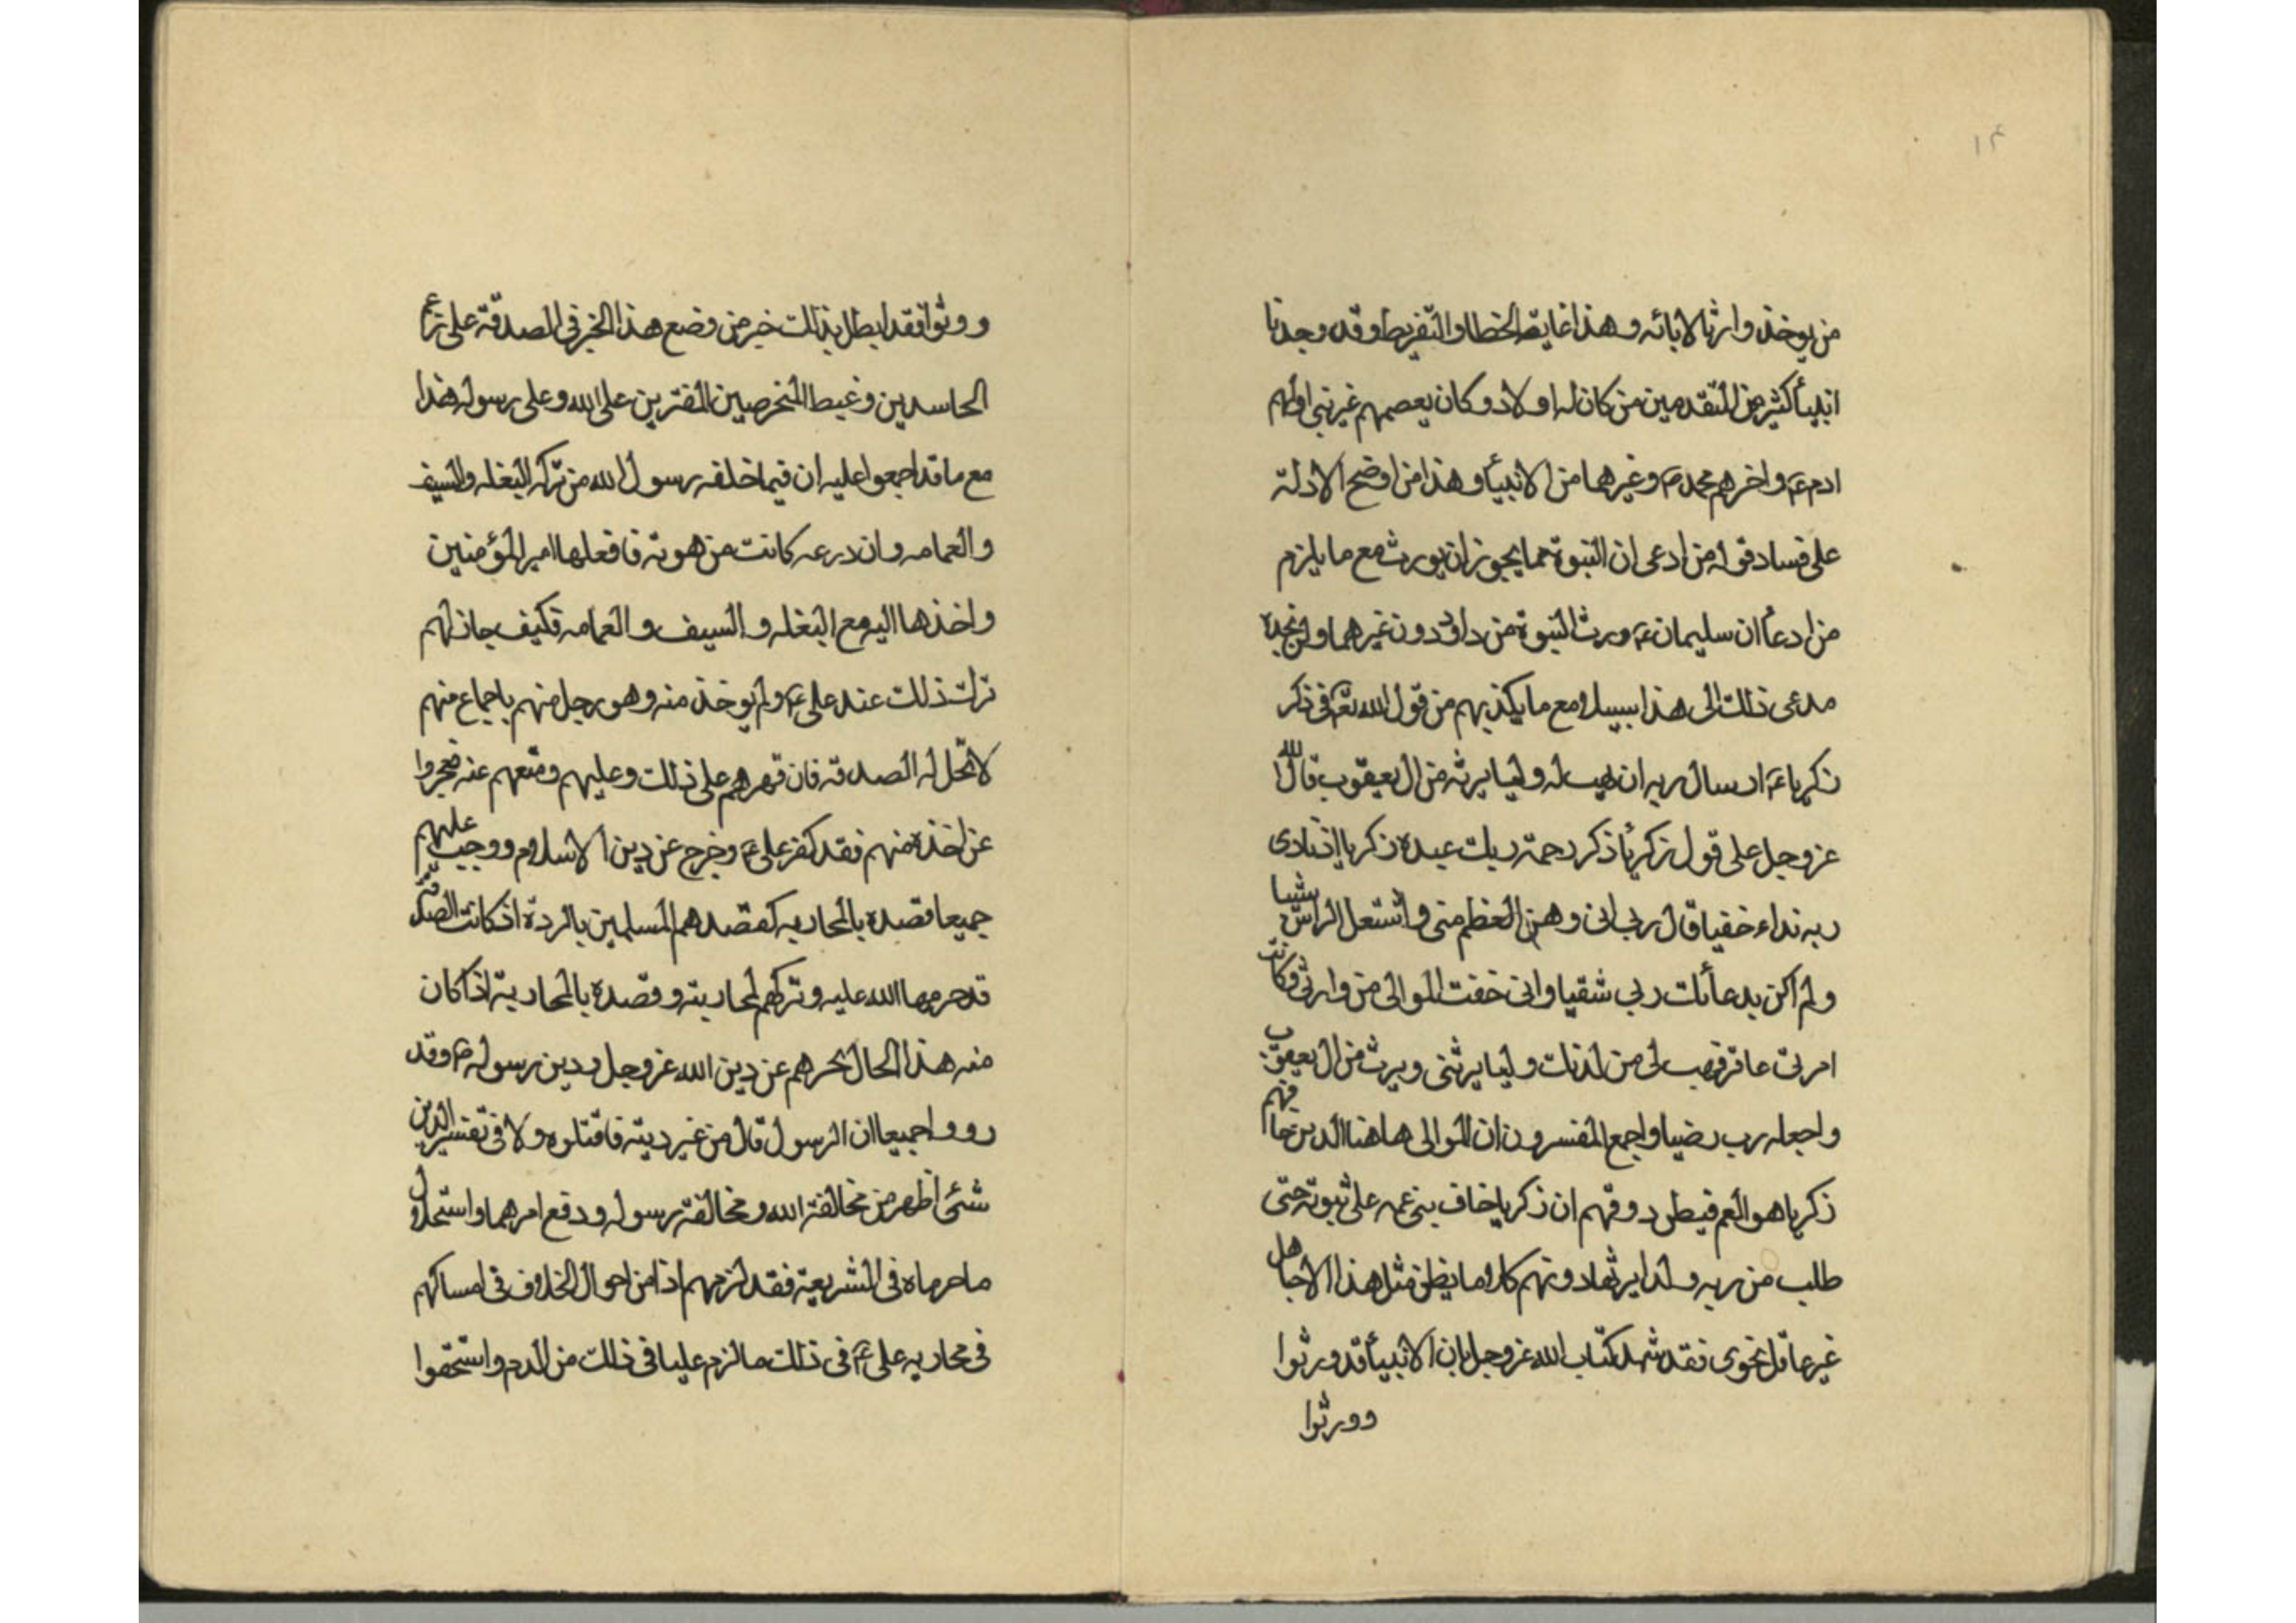 ١٤
من يوخذ وارثا لابائه وهذا غاية الخطا والتفريط وقد وجدنا
انبيأ كثير من المتقدمين من كان له اولاد وكان بعصمهم غير نبي اولهم
ادم ع و اخرهم محمد ص وغيرهما من الانبيأ وهذا من اوضح الادلة
على فساد قول من ادعى ان النبوة مما يجوز ان يورث مع ما يلزم
من ادعأ ان سليمان ع ورث النبوة من داود دون غيرهما ولن يجد
مدعى ذلك الى هذا سبيلا ومع ما يكذبهم من قول الله تع في ذكر
زكريا ع اد سال ربه ان يهب له وليا يرثه من ال يعقوب قال الله
عز وجل على قول زكريأ ذكر رحمة ربك عبده زكريا اذ نادى
ربه نداء خفيا قال رب انى وهن العظم منى واشتعل الراس شيبا
ولم اكن بدعائك ربي شقيا وانى خفت الموالى من وارئى وكانت
امرتى عاقر فهب لى من لدنك وليا يرثنى ويرث من ال يعقوب
واجعله رب رضيا واجمع المفسرون ان الموالى هاهنا الذين خافهم
زكريا هو العم فيظن دوفهم ان زكريا خاف بنى عمه على نبوته حتى
طلب من ربه ولدا يرثها دونهم كلا ما يظن مثل هذا الا جاهل
غير عاقل نحوى فقد شهد كتاب الله عز وجل بان الانبيأ قد ورثوا
وورثوا
وورثوا فقد ابطل بذلك خبر من وضع هذا الخبر في الصدقة على زعم
الحاسدين وغيط المتخرصين المفترين على الله وعلى رسوله هذا
مع ما قد اجمعوا عليه ان فيما خلفه رسول الله من تركه البغله والسيف
والعمامه وان درعه كانت من هوته فافعلها امير المؤمنين
واخذها اليه مع البغله و السيف و العمامه فكيف جاز لهم
ترك ذلك عند على ع ولم يوخذ منه وهو رجل منهم باجماع منهم
لا تحل له الصدقه فان قهرهم على ذلك وعليهم ومنعهم عنه فعجزوا
عن اخذه منهم فقد كفر على ع وخرج عن دين الاسلام ووجب عليهم
جميعا قصده بالمحاربه كقصدهم المسلمين بالردة اذ كانت الصدقة
قد حرمها الله عليه وتركهم لمحاربته وقصده بالمحاربة اذا كان
منه هذا الحال يحرهم عن دين الله عز وجل ودين رسوله ص وقد
رووا جميعا ان الرسول قال من غير دينه فاقتلوه ولا في تغيير الدين
شئ اظهر من مخالفة الله ومخالفة رسوله ودفع امرهما واستحلال
ما حرماه في الشريعة فقد لزمهم اذا من احوال الخلاف في امساكهم
في محاربه على ع في ذلك ما لزم عليا في ذلك من الدم واستحقوا